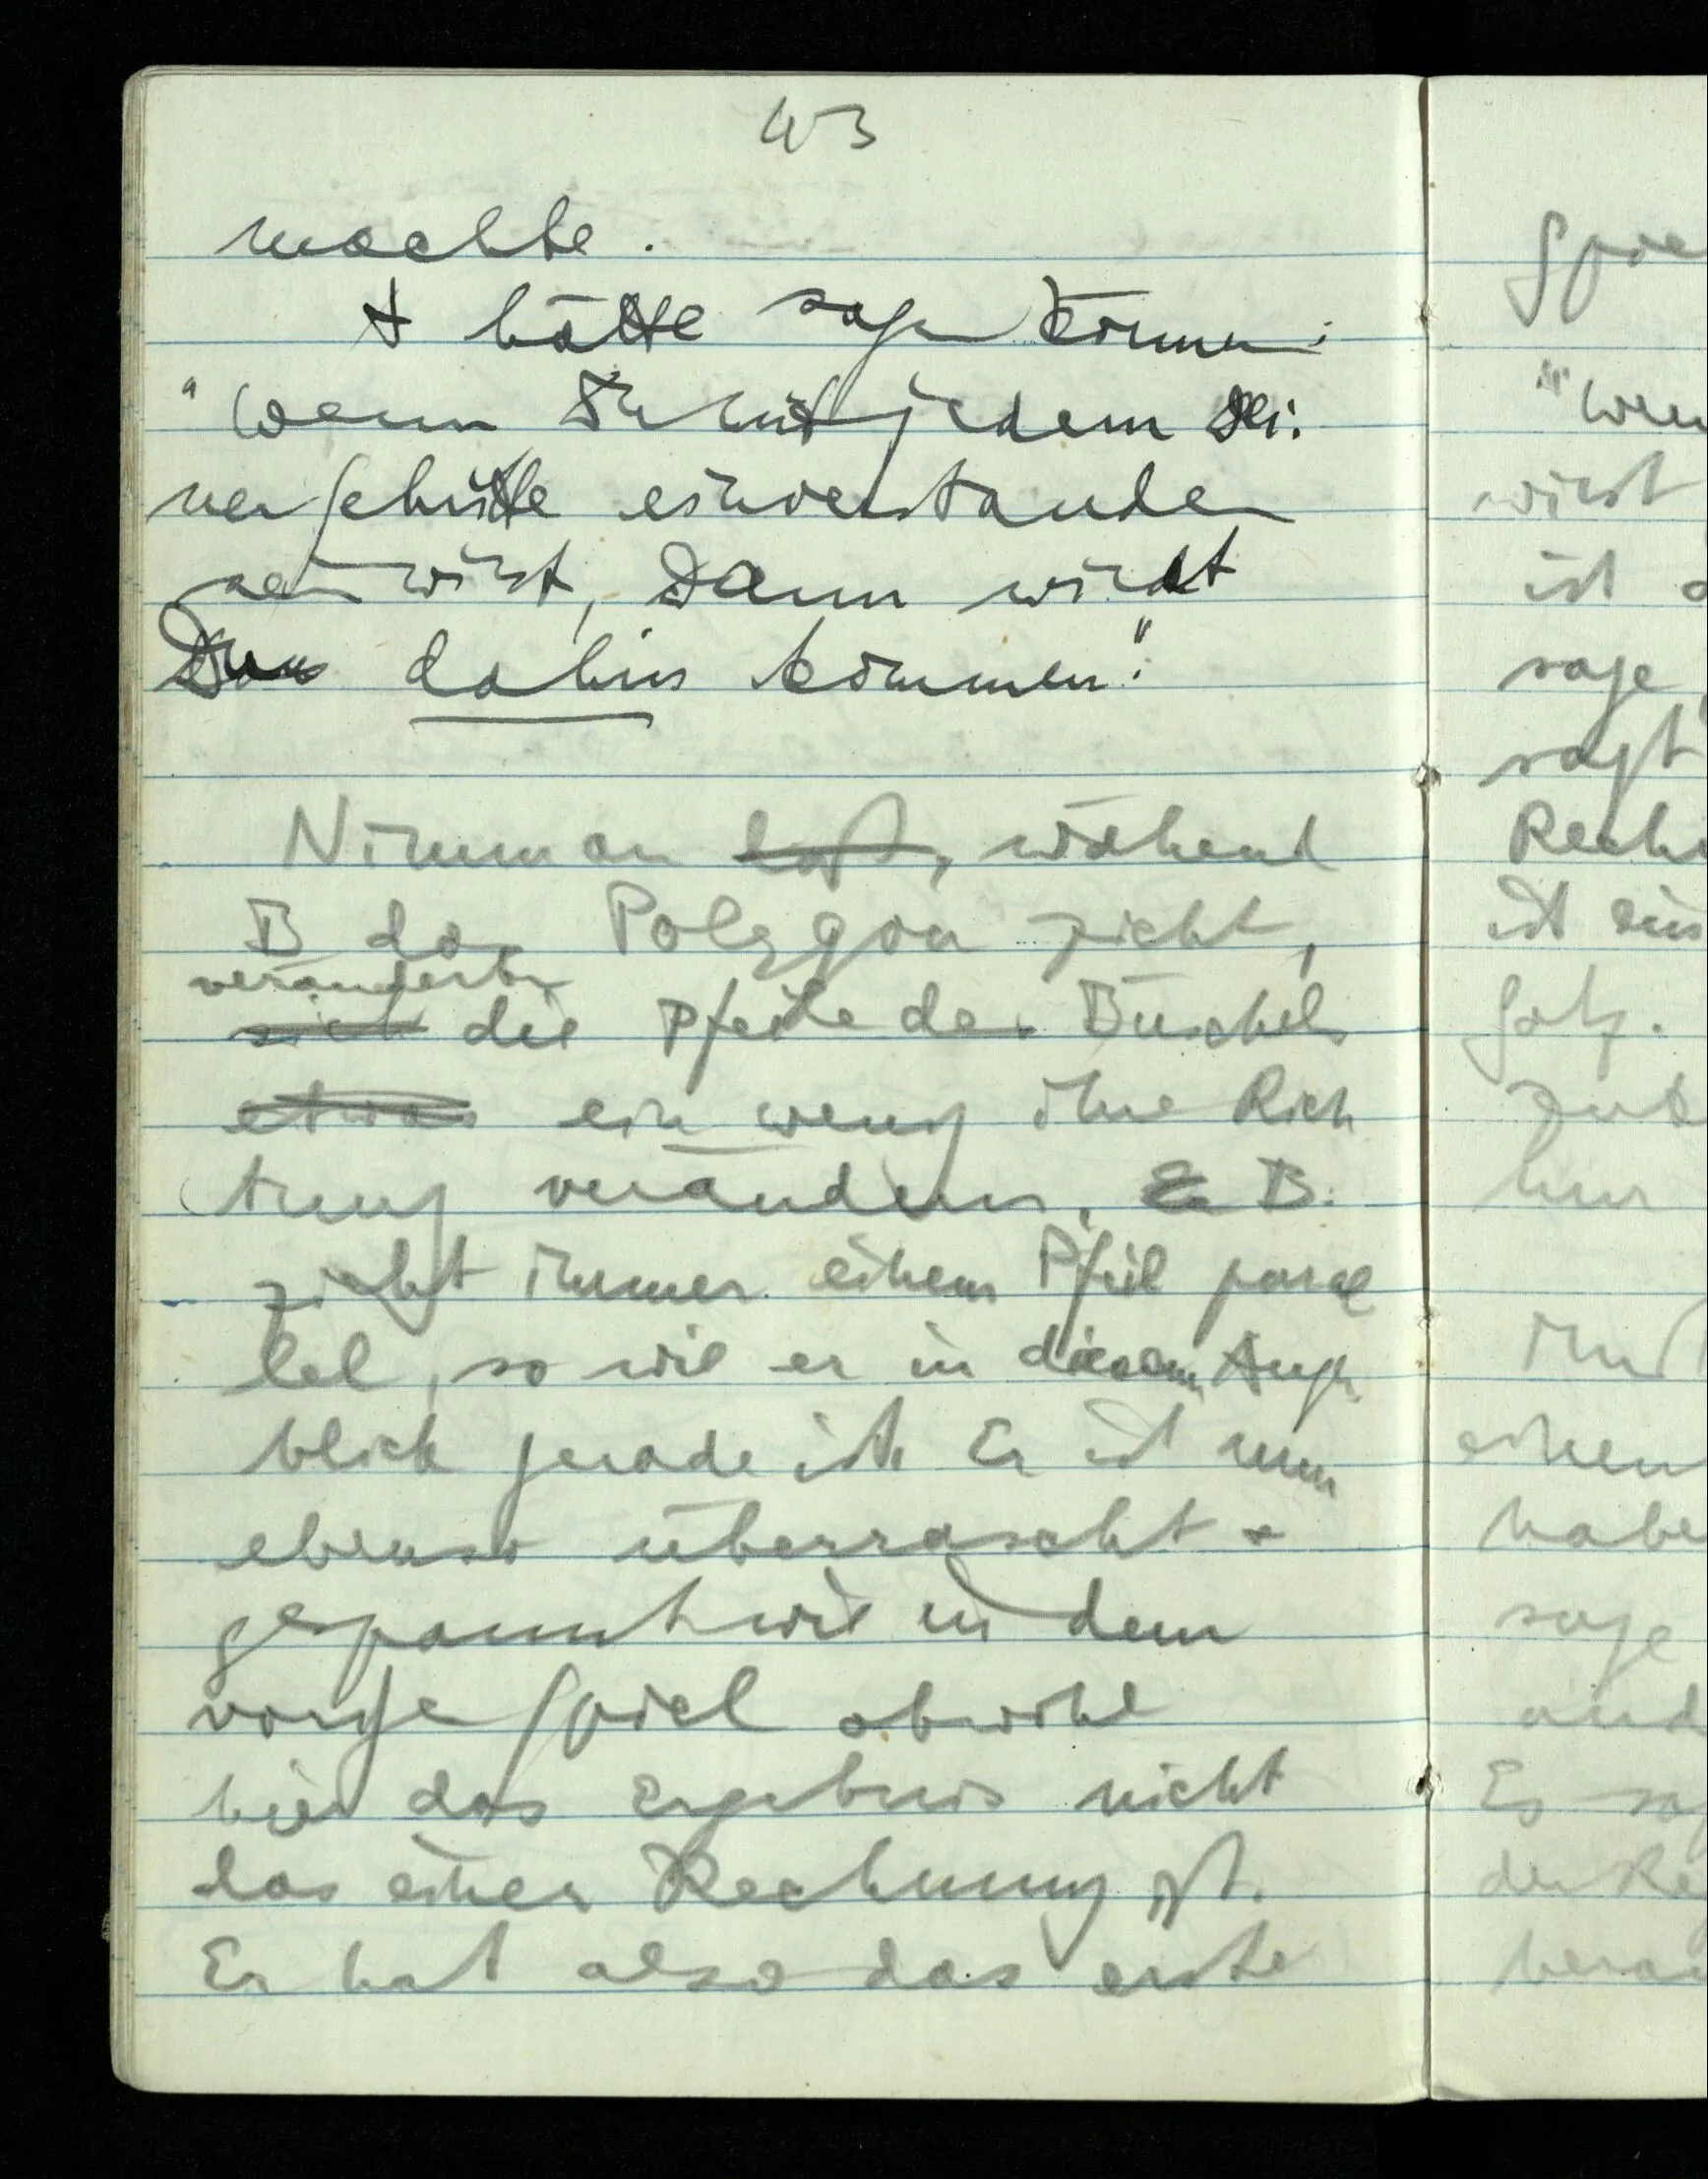 43
machte.
A hätte sagen können:
"Wenn Du mit jedem dei-
ner Schritte einverstanden
sein wirst, dann wirst
Du dahin kommen".
Nimm an laß, während
B das Polygon zieht,
verändert
sich die Pfeile des Büschels
etwas ein wenig ihre Rich
tung verändern. B
zieht immer einem Pfeil paral
lel, so wie er in diesem Augen
blick gerade ist. Er ist nun
ebenso überrascht &
gespannt wie in dem
vorige Spiel obwohl
hier das Ergebnis nicht
das einer Rechnung ist.
Er hat also das erste
Spie
"Wen
wirst
ist
sage
sagt
Rech
ist ein
Satz.
hier
einen
habe
sage
Es sa
der Re